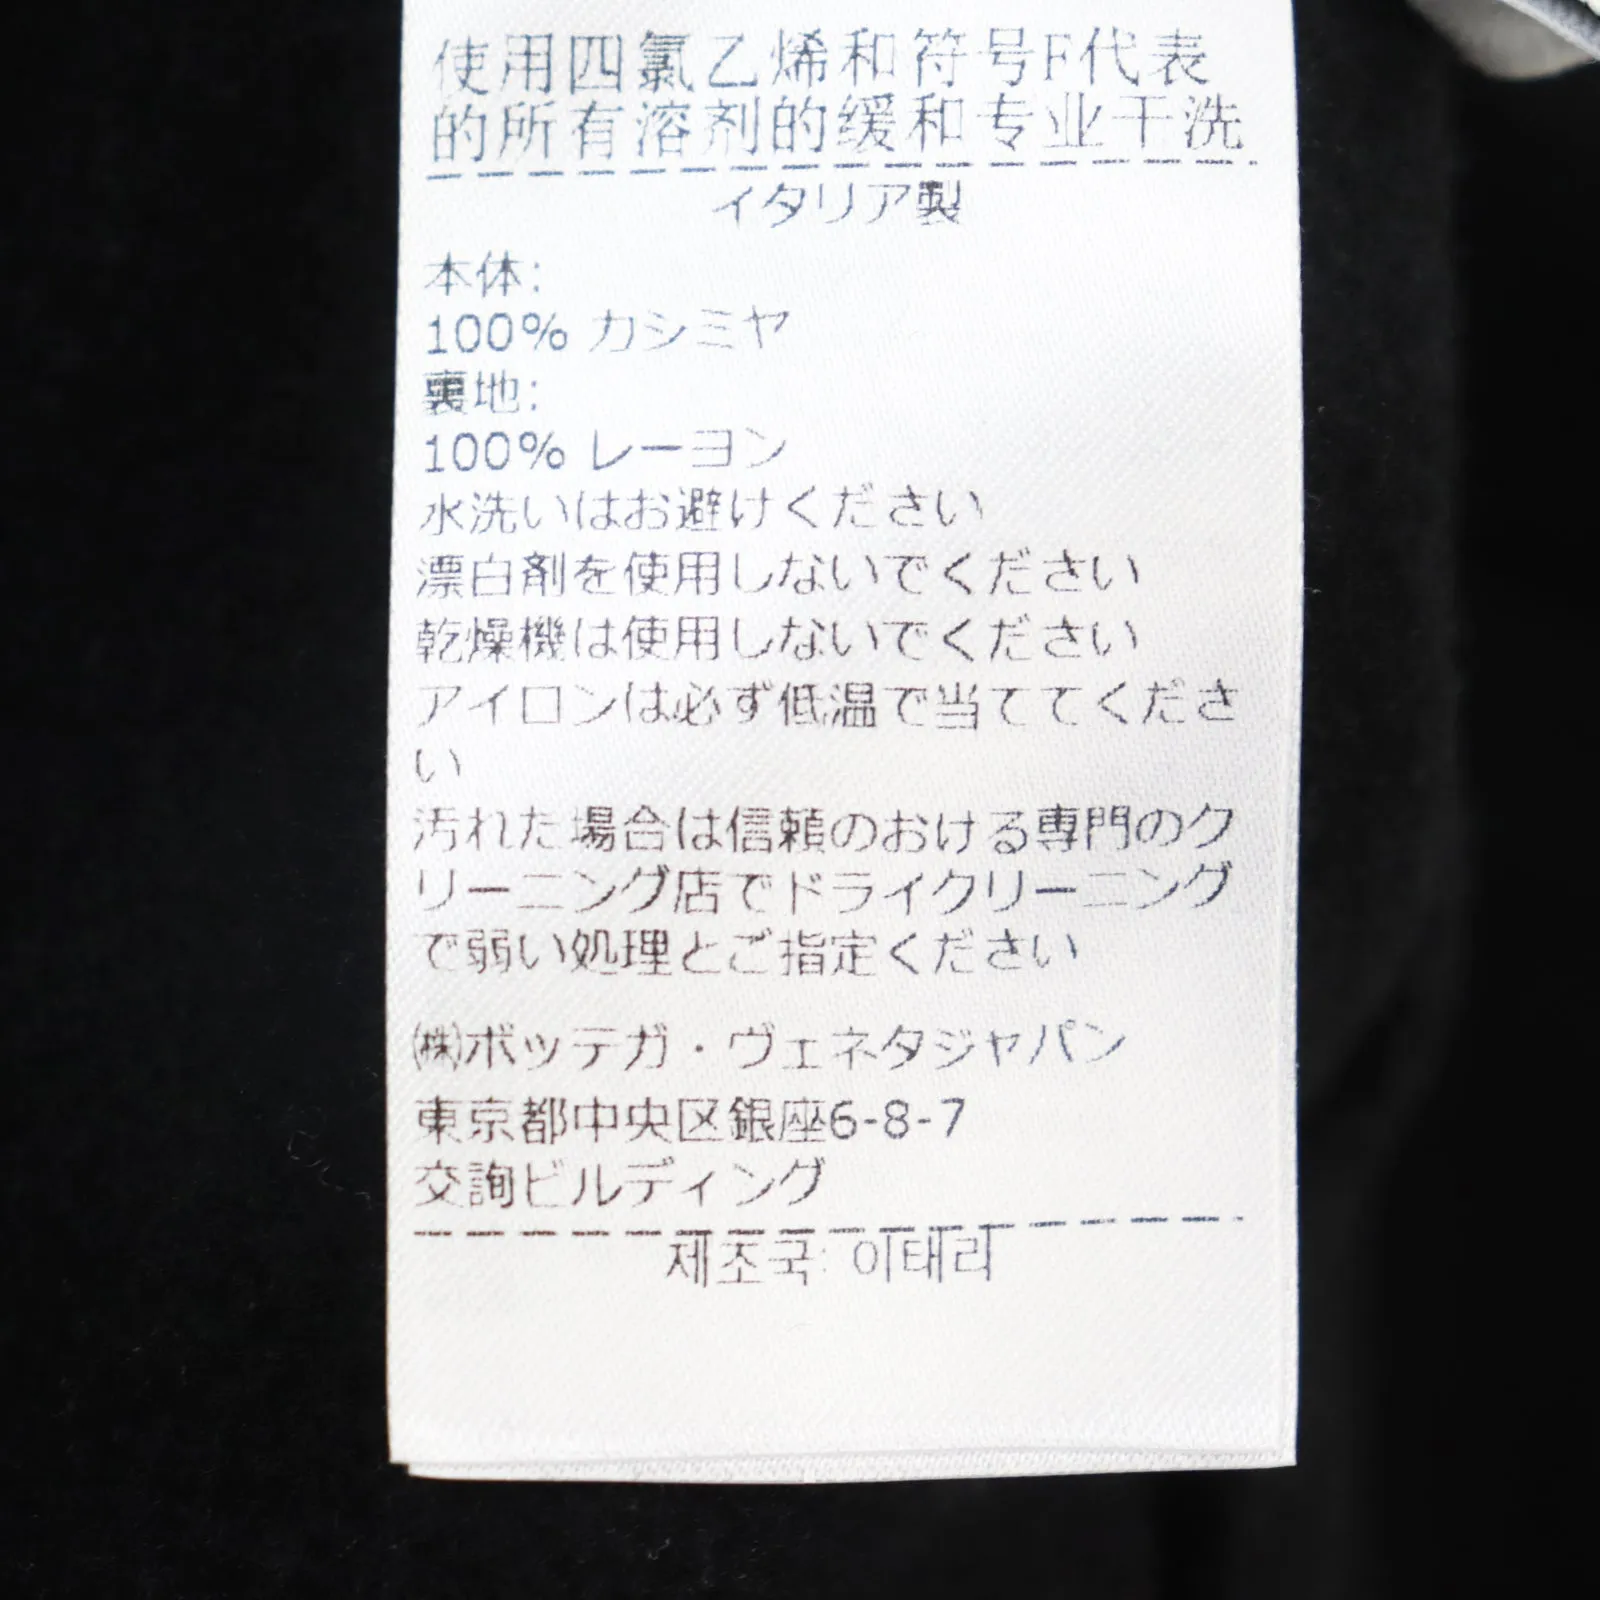 使用四氯乙烯和符号F代表
的所有溶剂的缓和专业干洗
イタリア製
本体:
100% カシミヤ
裏地:
100% レーヨン
水洗いはお避けください
漂白剤を使用しないでください
乾燥機は使用しないでください
アイロンは必ず低温で当ててくださ
い
汚れた場合は信頼のおける専門のク
リーニング店でドライクリーニング
で弱い処理とご指定ください
㈱ボッテガ・ヴェネタジャパン
東京都中央区銀座6-8-7
交詢ビルディング
제조국: 이태리